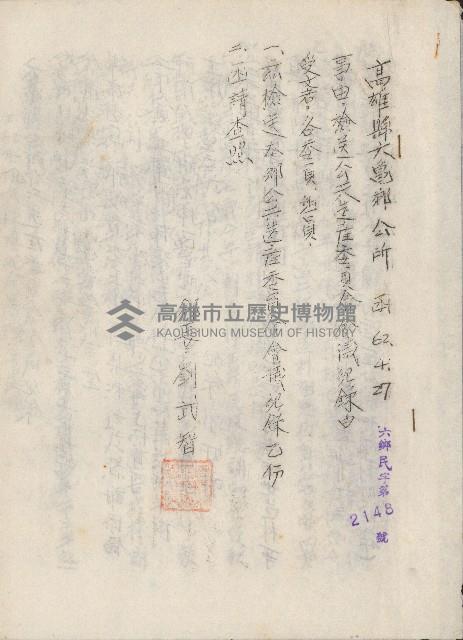 高雄縣六龜鄉公所 函 62.4.27
六鄉民字第2148號
事由：檢送公共造產委員會會議紀錄由
受文者：各委員、
一、茲檢送本鄉公共造產委員會會議紀錄乙份
二、函請查照
鄉長 劉武智
高雄市立歷史博物館
KAOHSIUNG MUSEUM OF HISTORY